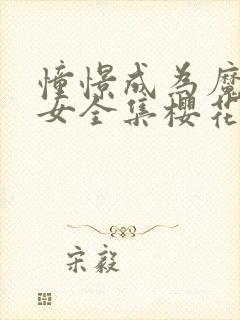 憧憬成为魔
女全集樱花
宋毅